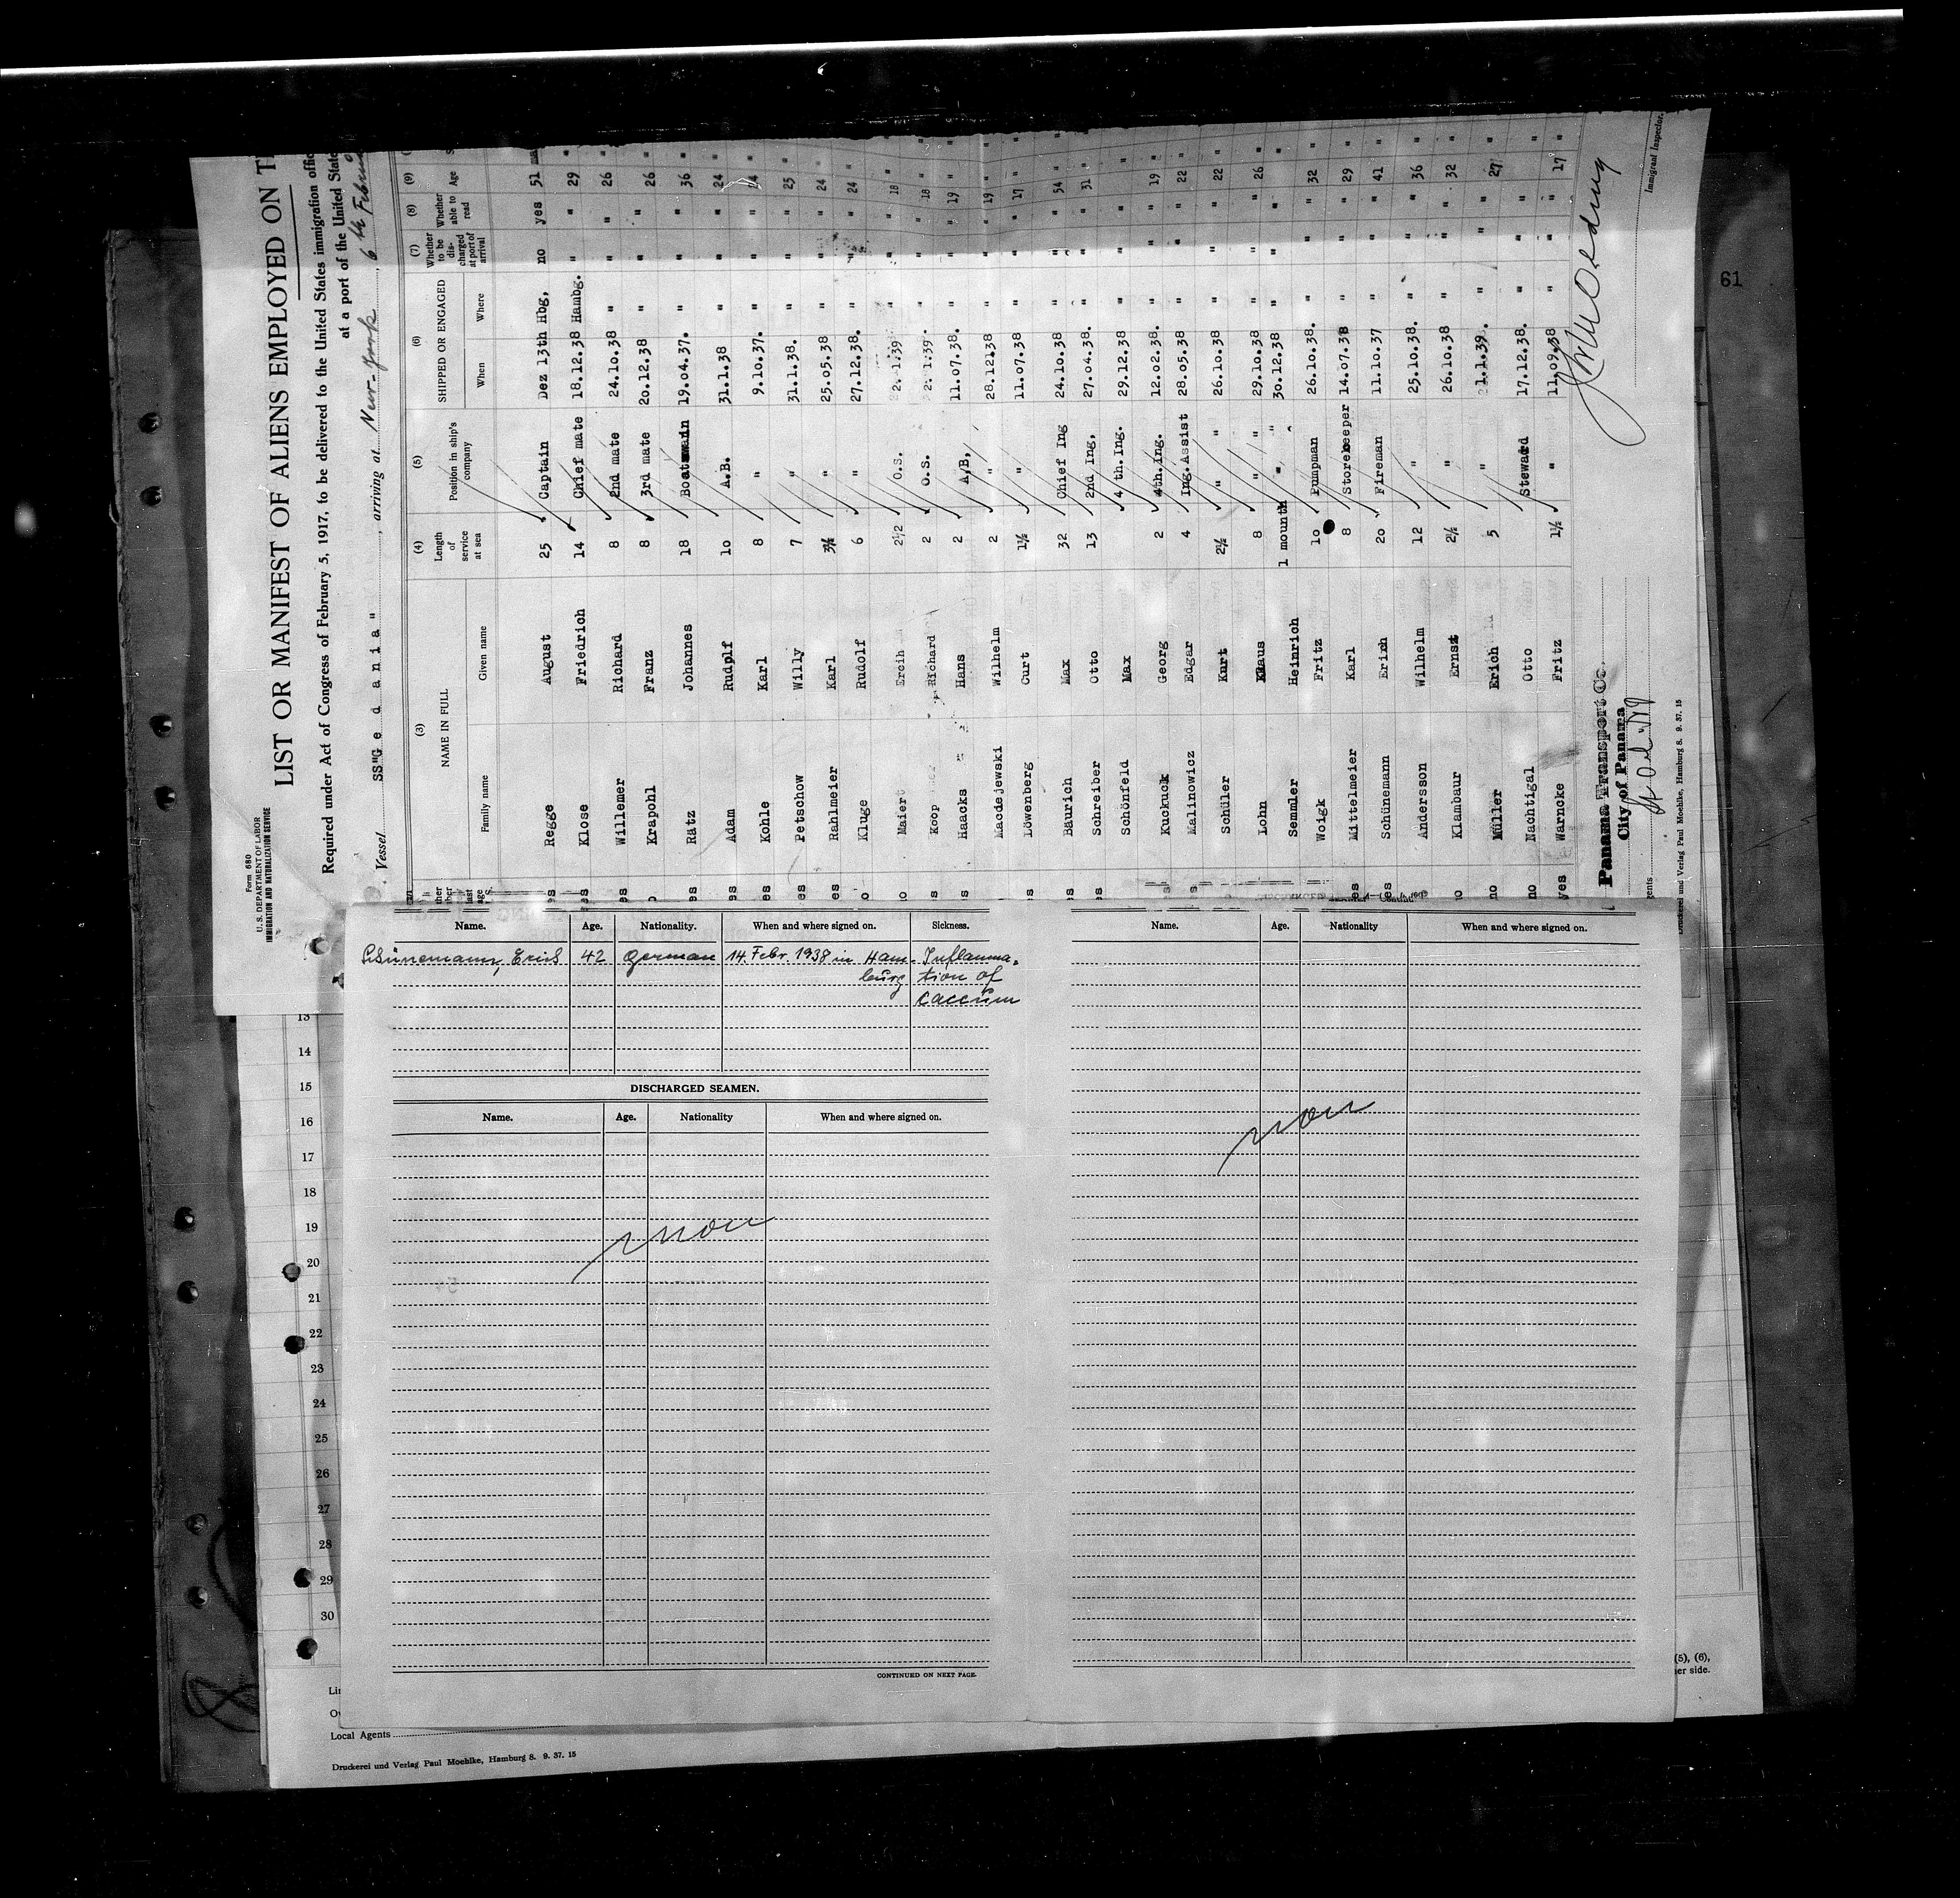 61
Form 680
U. S. DEPARTMENT OF LABOR
IMMIGRATION AND NATURALIZATION SERVICE
LIST OR MANIFEST OF ALIENS EMPLOYED ON
Required under Act of Congress of February 5, 1917, to be delivered to the United States immigration
at a port of the United
Vessel SS"G e d a n i a" , arriving at New-York , 6th
(3) (4) (5) (6) (7) (8) (9)
NAME IN FULL Length of service at sea Position in ship's company SHIPPED OR ENGAGED Whether to be discharged at port of arrival Whether able to read Age
Family name Given name When Where
Regge August 25 Captain Dez 13th Hbg, no yes 51
Klose Friedrich 14 Chief mate 18.12.38 Hambg. " " 29 "
Willemer Richard 8 2nd mate 24.10.38 " " " 26 "
Krapohl Franz 8 3rd mate 20.12.38 " " " 26 "
Rätz Johannes 18 Boatsmain 19.04.37. " " " 36 "
Adam Rudplf 10 A.B. 31.1.38 " " " 24 "
Kohle Karl 8 " 9.10.37. " " " 24 "
Petschow Willy 7 " 31.1.38. " " " 25 "
Rahlmeier Karl 3½ " 25.05.38 " " " 24 "
Kluge Rudolf 6 " 27.12.38. " " " 24 "
Maiert Ercih 2½ O.S. 22.1.39 " " " 18 "
Koop Richard 2 O.S. 22.1.39. " " " 18 "
Haacks Hans 2 A.B, 11.07.38. " " " 19 "
Macdejewski Wilhelm 2 " 28.12.38 " " " 19 "
Löwenberg Curt 1½ " 11.07.38 " " " 17 "
Baurich Max 32 Chief Ing 24.10.38 " " " 54 "
Schreiber Otto 13 2nd Ing, 27.04.38. " " " 31 "
Schönfeld Max 4 th. Ing. 29.12.38 " " "
Kuckuck Georg 2 4th.Ing. 12.02.38. " " " 19 "
Malinowicz Edgar 4 Ing.Assist 28.05.38 " " " 22 "
Schüler Kurt 2½ " " 26.10.38 " " " 22 "
Lohn Klaus 8 " " 29.10.38 " " " 26 "
Semmler Heinrich 1 mounth " " 30.12.38 " " "
Woigk Fritz 10 Pumpman 26.10.38. " " " 32 "
Mittelmeier Karl 8 Storekeeper 14.07.38 " " " 29 "
Schünemann Erich 20 Fireman 11.10.37 " " " 41 "
Andersson Wilhelm 12 " 25.10.38. " " " 36 "
Klambaur Ernst 2½ " 26.10.38 " " " 32 "
Müller Erich 5 " 21.1.39. " " 27 "
Nachtigal Otto Steward 17.12.38. " " "
Warncke Fritz 1½ " 11.09.38 " " " 17 "
Panama Transport Co.
City of Panama
Immigrant Inspector.
Druckerei und Verlag Paul Moehlke, Hamburg 8. 9. 37. 15
Name. Age. Nationality. When and where signed on. Sickness.
Schünemann, Erich 42 German 14. Febr. 1938 in Ham- Inflamma-
burg tion of
caecum
DISCHARGED SEAMEN.
Name. Age. Nationality When and where signed on.
non
CONTINUED ON NEXT PAGE.
Name. Age. Nationality When and where signed on.
non
13
14
15
16
17
18
19
20
21
22
23
24
25
26
27
28
29
30
(5), (6),
er side.
Local Agents
Druckerei und Verlag Paul Moehlke, Hamburg 8. 9. 37. 15